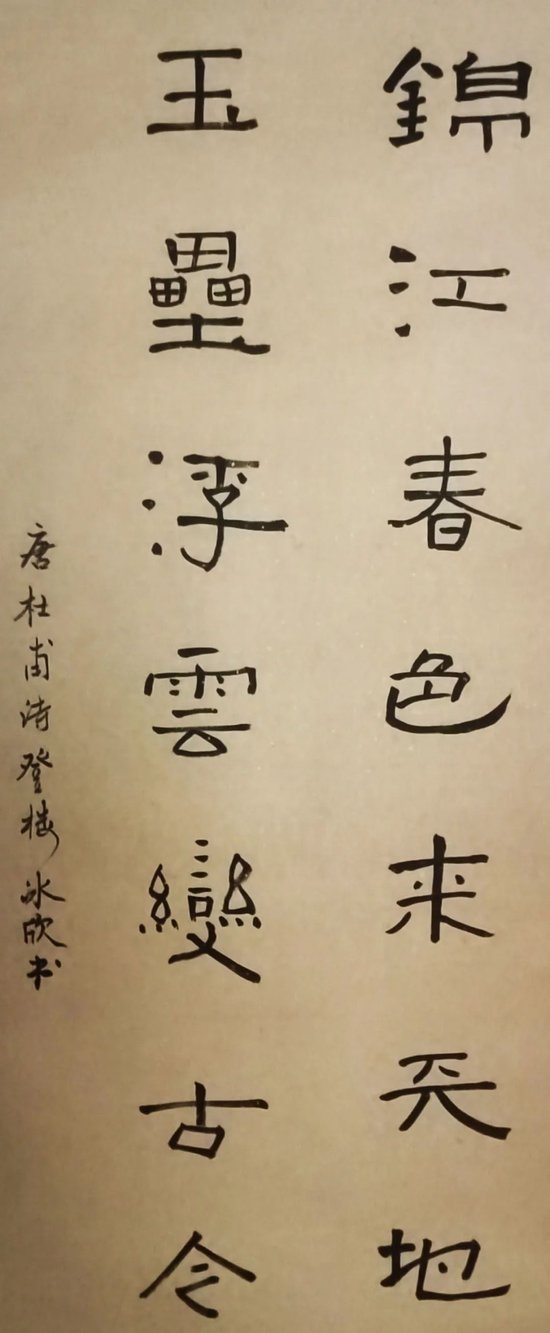 錦江春色来天地
玉壘浮雲變古今
唐杜甫诗登楼冰欣书